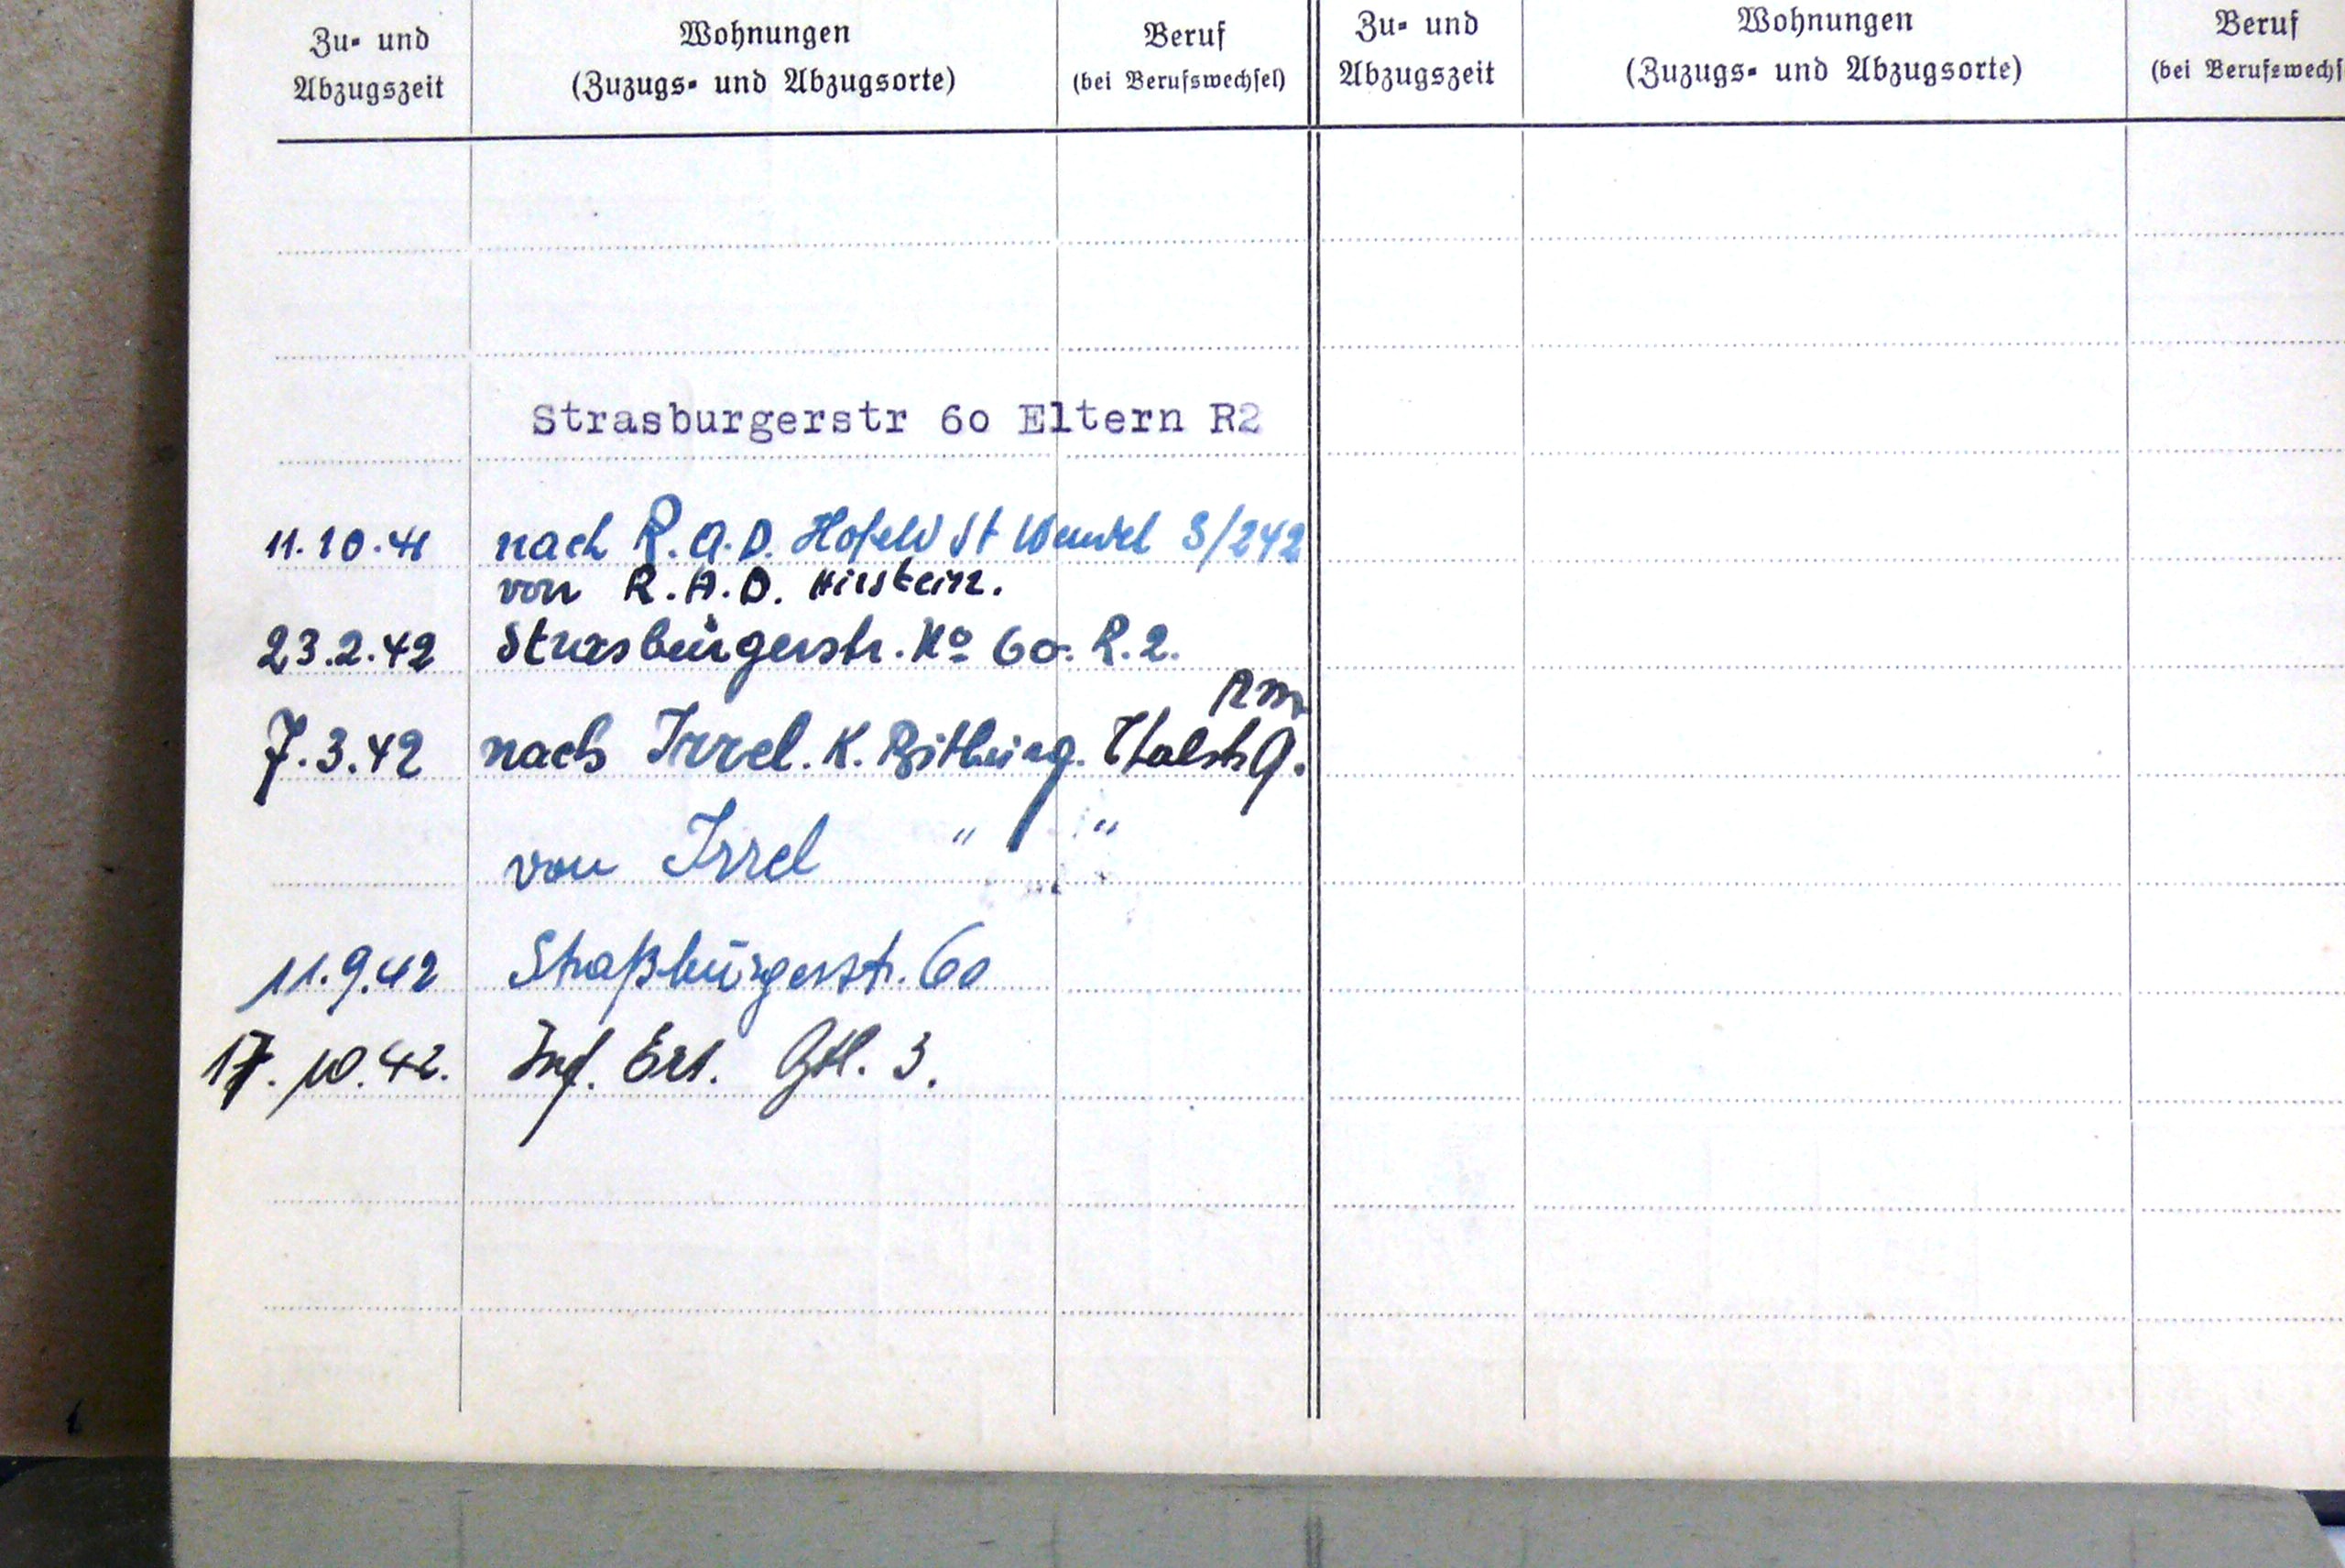 Zu- und Abzugszeit
Wohnungen
(Zuzugs- und Abzugsorte)
Beruf
(bei Berufswechsel)
Zu- und Abzugszeit
Wohnungen
(Zuzugs- und Abzugsorte)
Beruf
(bei Berufswechs
Strasburgerstr 60 Eltern R2
11.10.41 nach R.A.D. Hofeld St Wendel 3/242
von R.A.D. Hirstein.
23.2.42 Strasburgerstr. No 60. R.2.
7.3.42 nach Irrel. K. Bitburg. Thalstr 9.
von Irrel " "
11.9.42 Straßburgerstr. 60
17.10.42. Inf. Ers. 3.